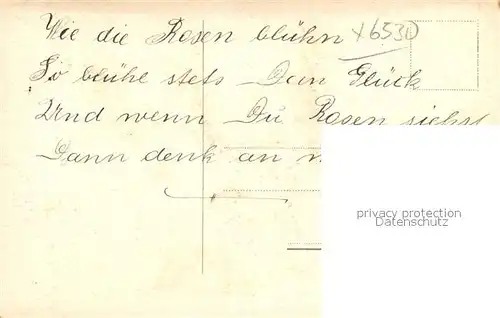 Wie die Rosen blühn x653L
So blühe stets Dein Glück
Und wenn Du Rosen siehst
Dann denk an
privacy protection
Datenschutz